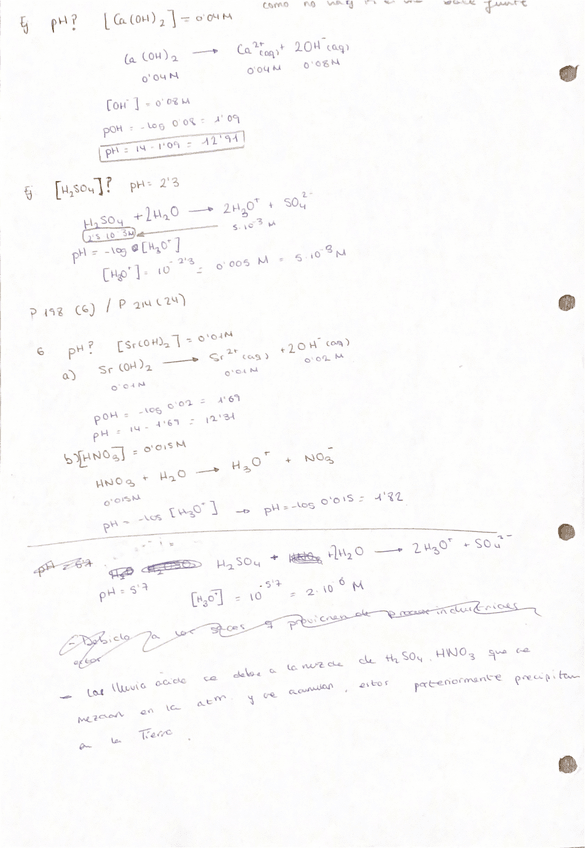 como no hay
Ej pH? [Ca(OH)₂] = 0'04M
Ca(OH)₂ → Ca²⁺(aq) + 2OH⁻(aq)
0'04M 0'04M 0'08M
[OH⁻] = 0'08M
pOH = -log 0'08 = 1'09
pH = 14 - 1'09 = 12'91
Ej [H₂SO₄]? pH = 2'3
H₂SO₄ + 2H₂O → 2H₃O⁺ + SO₄²⁻
2'5·10⁻³M 5·10⁻³M
pH = -log [H₃O⁺]
[H₃O⁺] = 10⁻²'³ = 0'005 M = 5·10⁻³M
P 198 (6) / P 214 (24)
6 pH? [Sr(OH)₂] = 0'01M
a) Sr(OH)₂ → Sr²⁺(aq) + 2OH⁻(aq)
0'01M 0'01M 0'02M
pOH = -log 0'02 = 1'69
pH = 14 - 1'69 = 12'31
b) [HNO₃] = 0'015M
HNO₃ + H₂O → H₃O⁺ + NO₃⁻
0'015M
pH = -log [H₃O⁺] → pH = -log 0'015 = 1'82
H₂SO₄ + 2H₂O → 2H₃O⁺ + SO₄²⁻
pH = 5'7 [H₃O⁺] = 10⁻⁵'⁷ = 2·10⁻⁶ M
- Debido a los gases q provienen de procesos industriales
estos
- Las lluvia ácida se debe a la mezcla de H₂SO₄, HNO₃ que se
mezclan en la atm y se acumulan, estos posteriormente precipitan
a la Tierra.